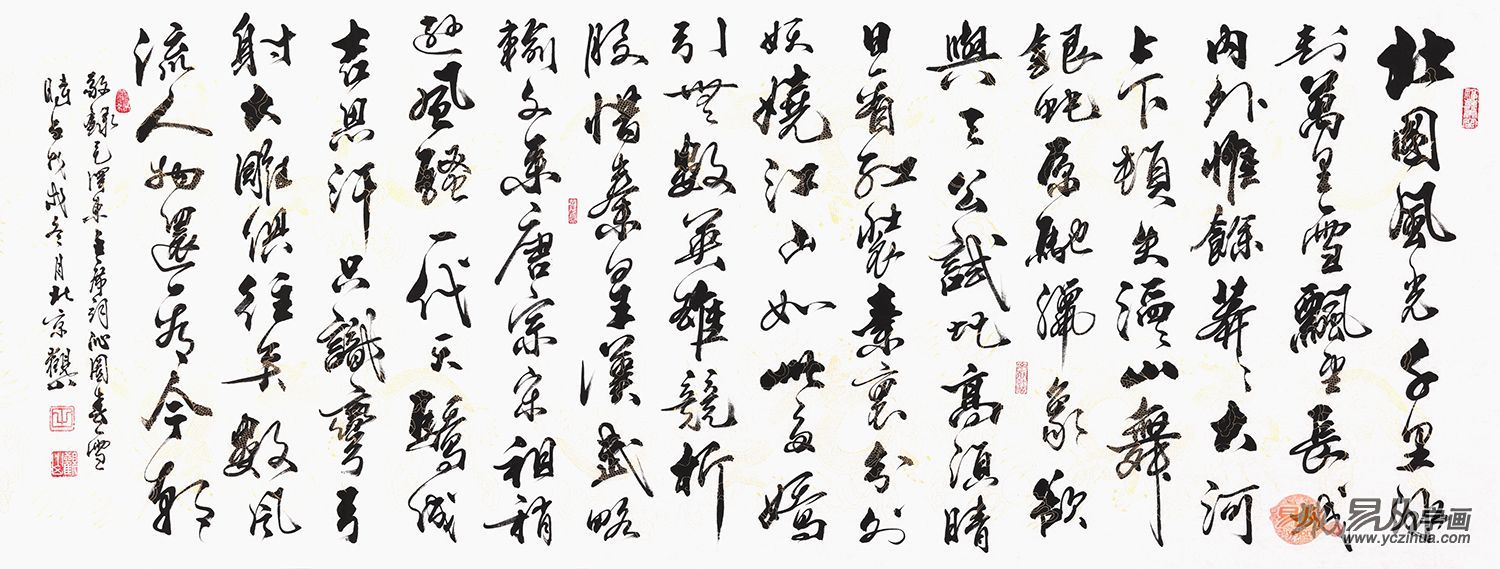 北國風光千里冰
封萬里雪飄望長城
內外惟餘莽〻大河
上下頓失滔〻山舞
銀蛇原馳臘象欲
與天公試比高須晴
日看紅裝素裹分外
妖嬈江山如此多嬌
引無數英雄競折
腰惜秦皇漢武略
輸文采唐宗宋祖稍
遜風騷一代天驕成
吉思汗只識彎弓
射大雕俱往矣數風
流人物還看今朝
敬錄毛澤東主席詞沁園春雪
時在戊戌冬月北京觀山
易从字画
www.yczihua.com